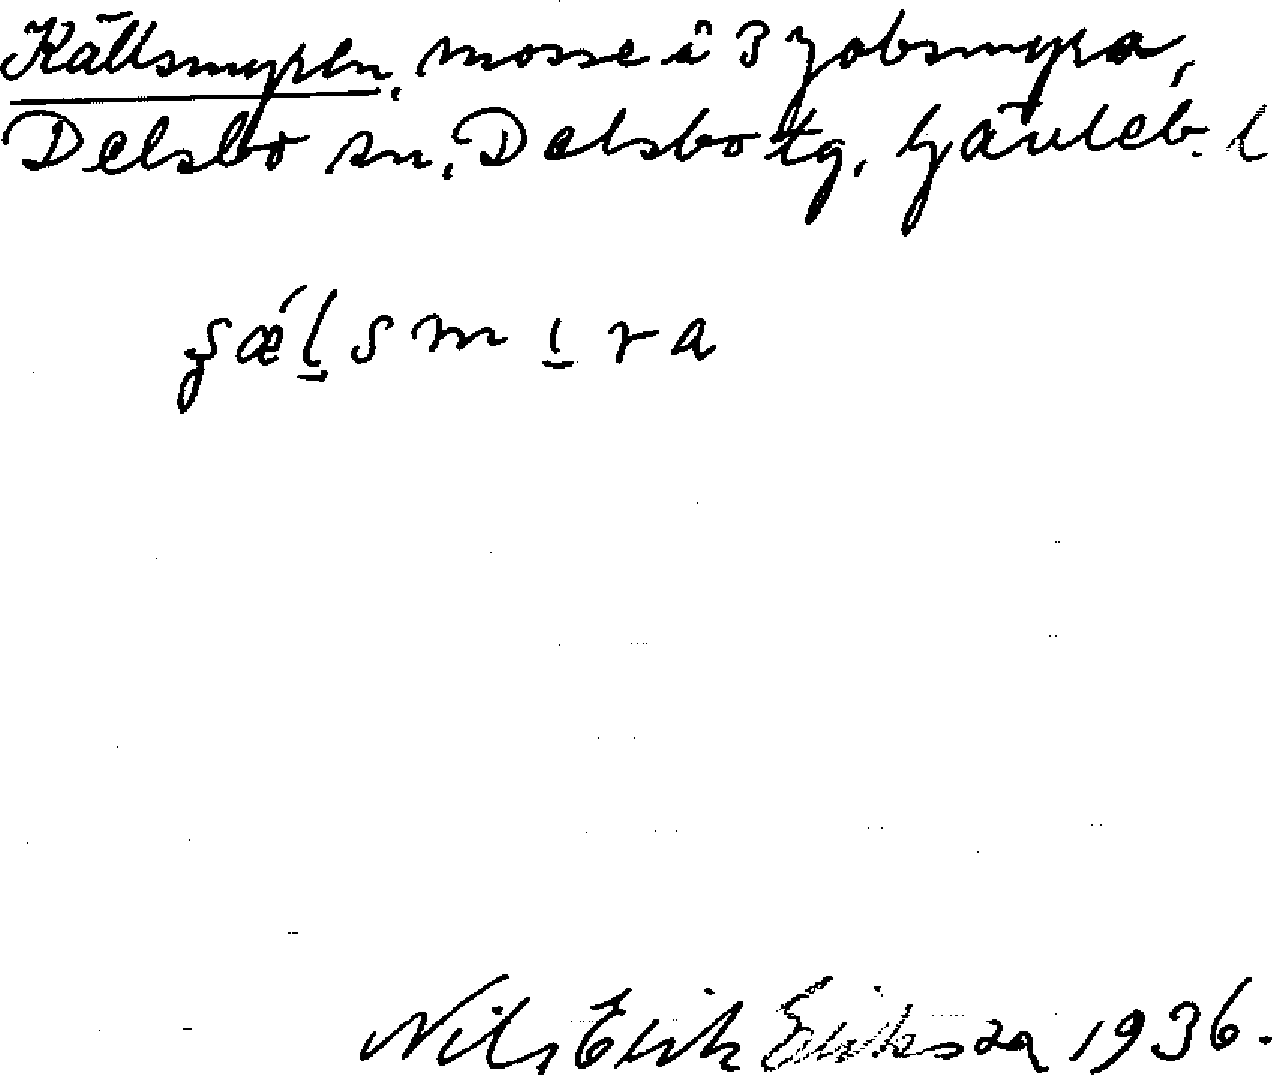 Källsmyren, mosse i 3 Jobsmyra,
Delsbo sn, Delsbo tg, Gävleb. l
Nils Erik Eriksson 1936.